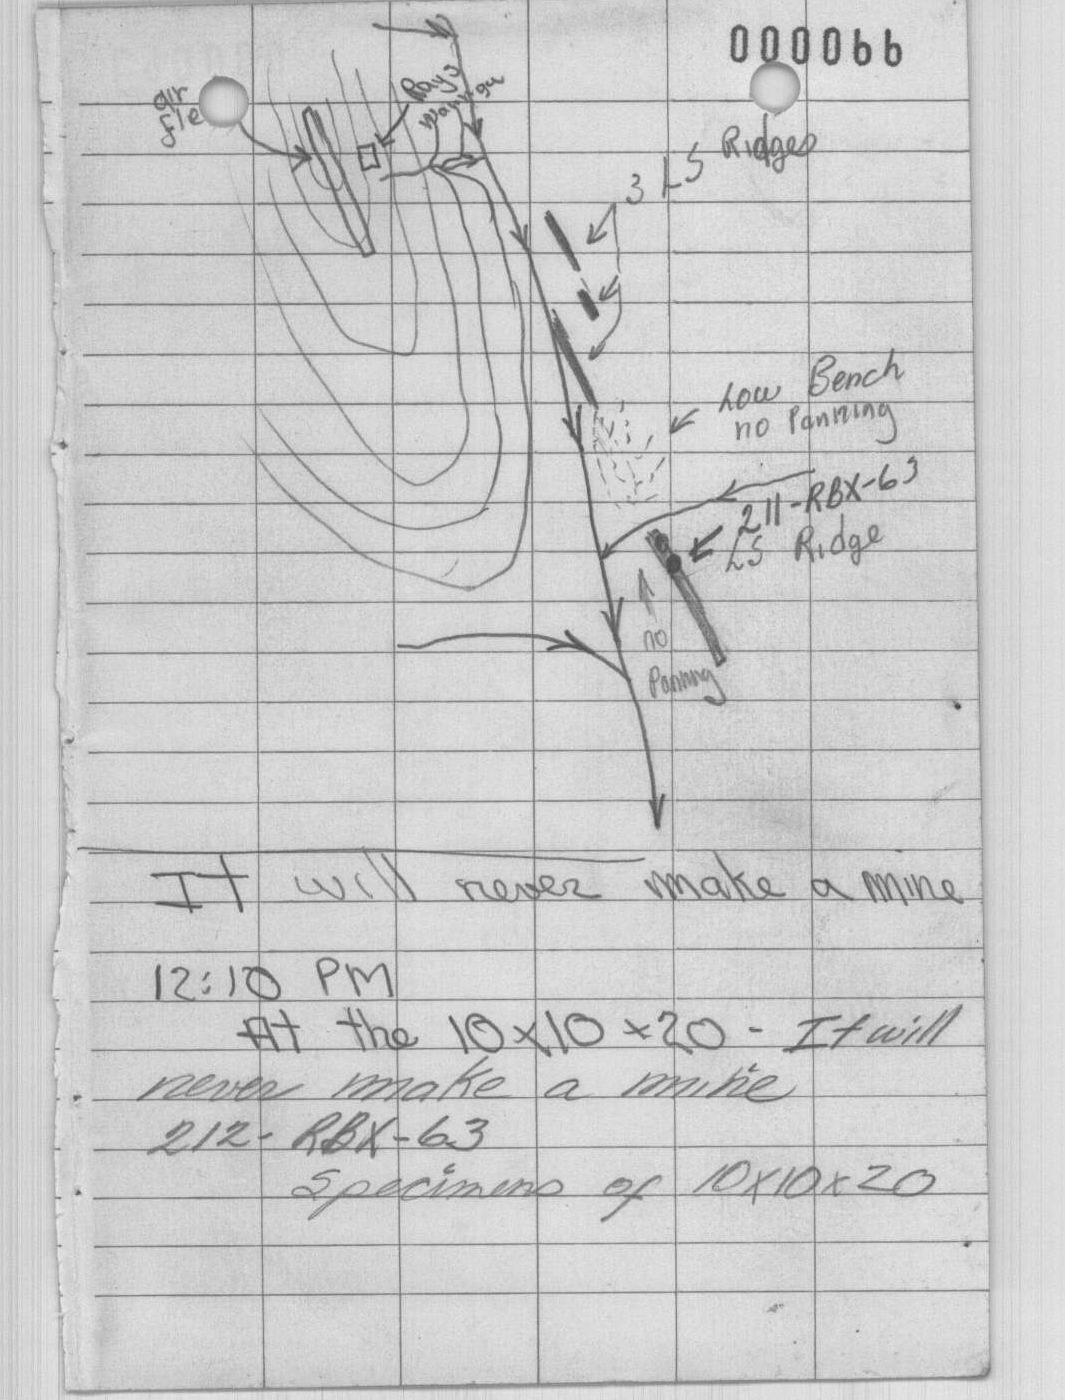 000066
air
fle
Rays
3 LS Ridges
Low Bench
no Panning
211-RBX-63
LS Ridge
no
Panning
It will never make a mine
12:10 PM
At the 10x10x20 - It will
never make a mine
212- RBX-63
Specimens of 10x10x20